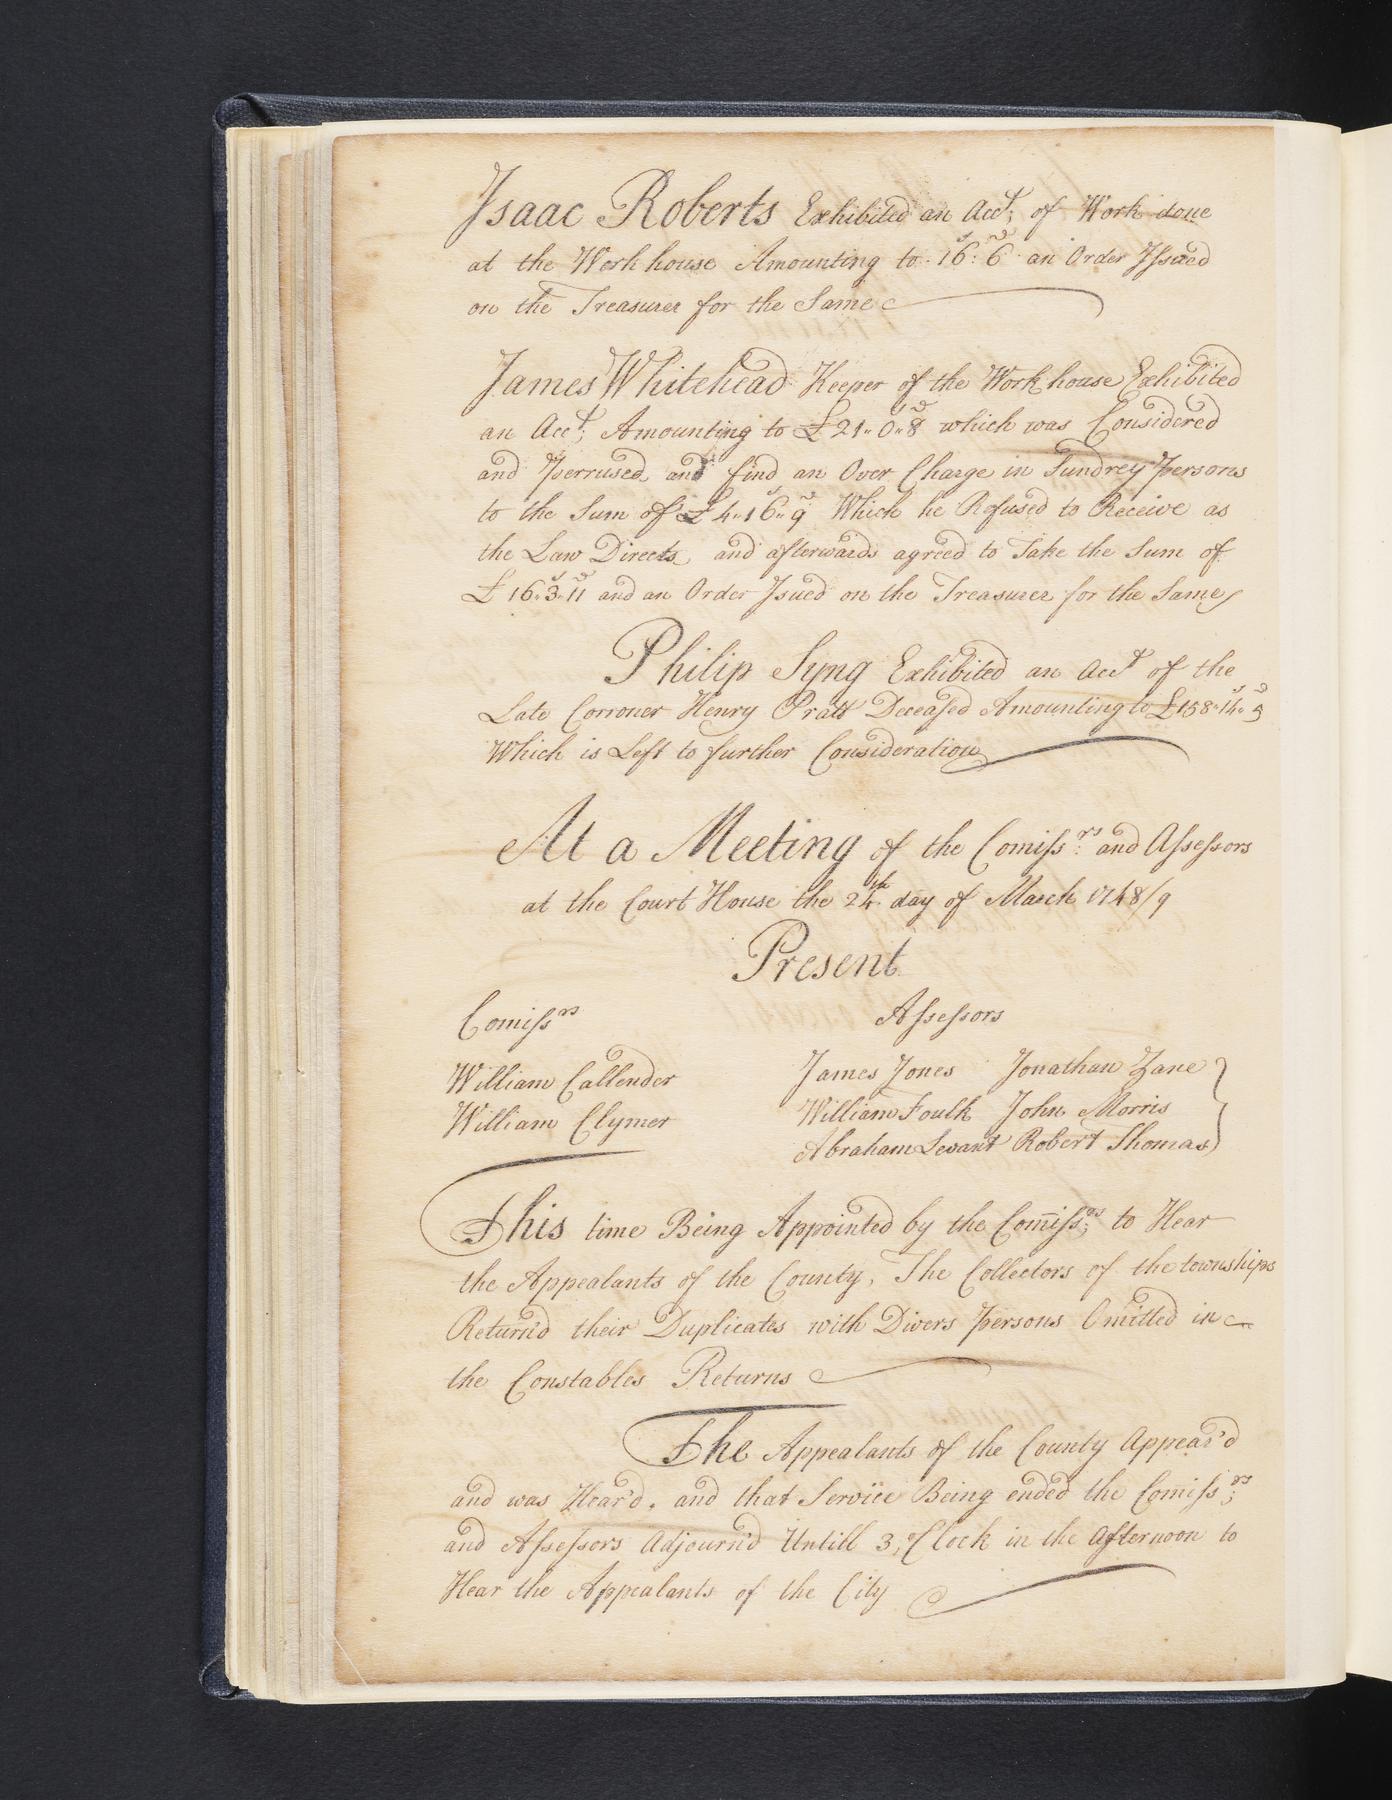 Isaac Roberts Exhibited an Acct; of Work done
at the Work house Amounting to 16s: 6d an Order Issued
on the Treasurer for the Same
James Whitehead Keeper of the Work house Exhibited
an Acct; Amounting to £21„0s„8d which was Considered
and Perrused and find an Over Charge in Sundrey Persons
to the Sum of £4„16s„9d Which he Refused to Receive as
the Law Directs and afterwards agreed to Take the Sum of
£16„3s„11d and an Order Isued on the Treasurer for the Same
Philip Syng Exhibited an Acct of the
Late Corroner Henry Pratt Deceased Amounting to £158„14s„5d
Which is Left to further Consideration
At a Meeting of the Comissrs: and Assessors
at the Court House the 24th day of March 1748/9
Present
Comissrs Assessors
William Callender James Jones Jonathan Zane
William Clymer William Foulk John Morris
Abraham Levant Robert Thomas
This time Being Appointed by the Comissrs; to Hear
the Appealants of the County, The Collectors of the townships
Return'd their Duplicates with Divers Persons Omitted in
the Constables Returns
The Appealants of the County Appear'd
and was Hear'd. and that Service Being ended the Comissrs;
and Assessors Adjourn'd Untill 3, Clock in the Afternoon to
Hear the Appealants of the City